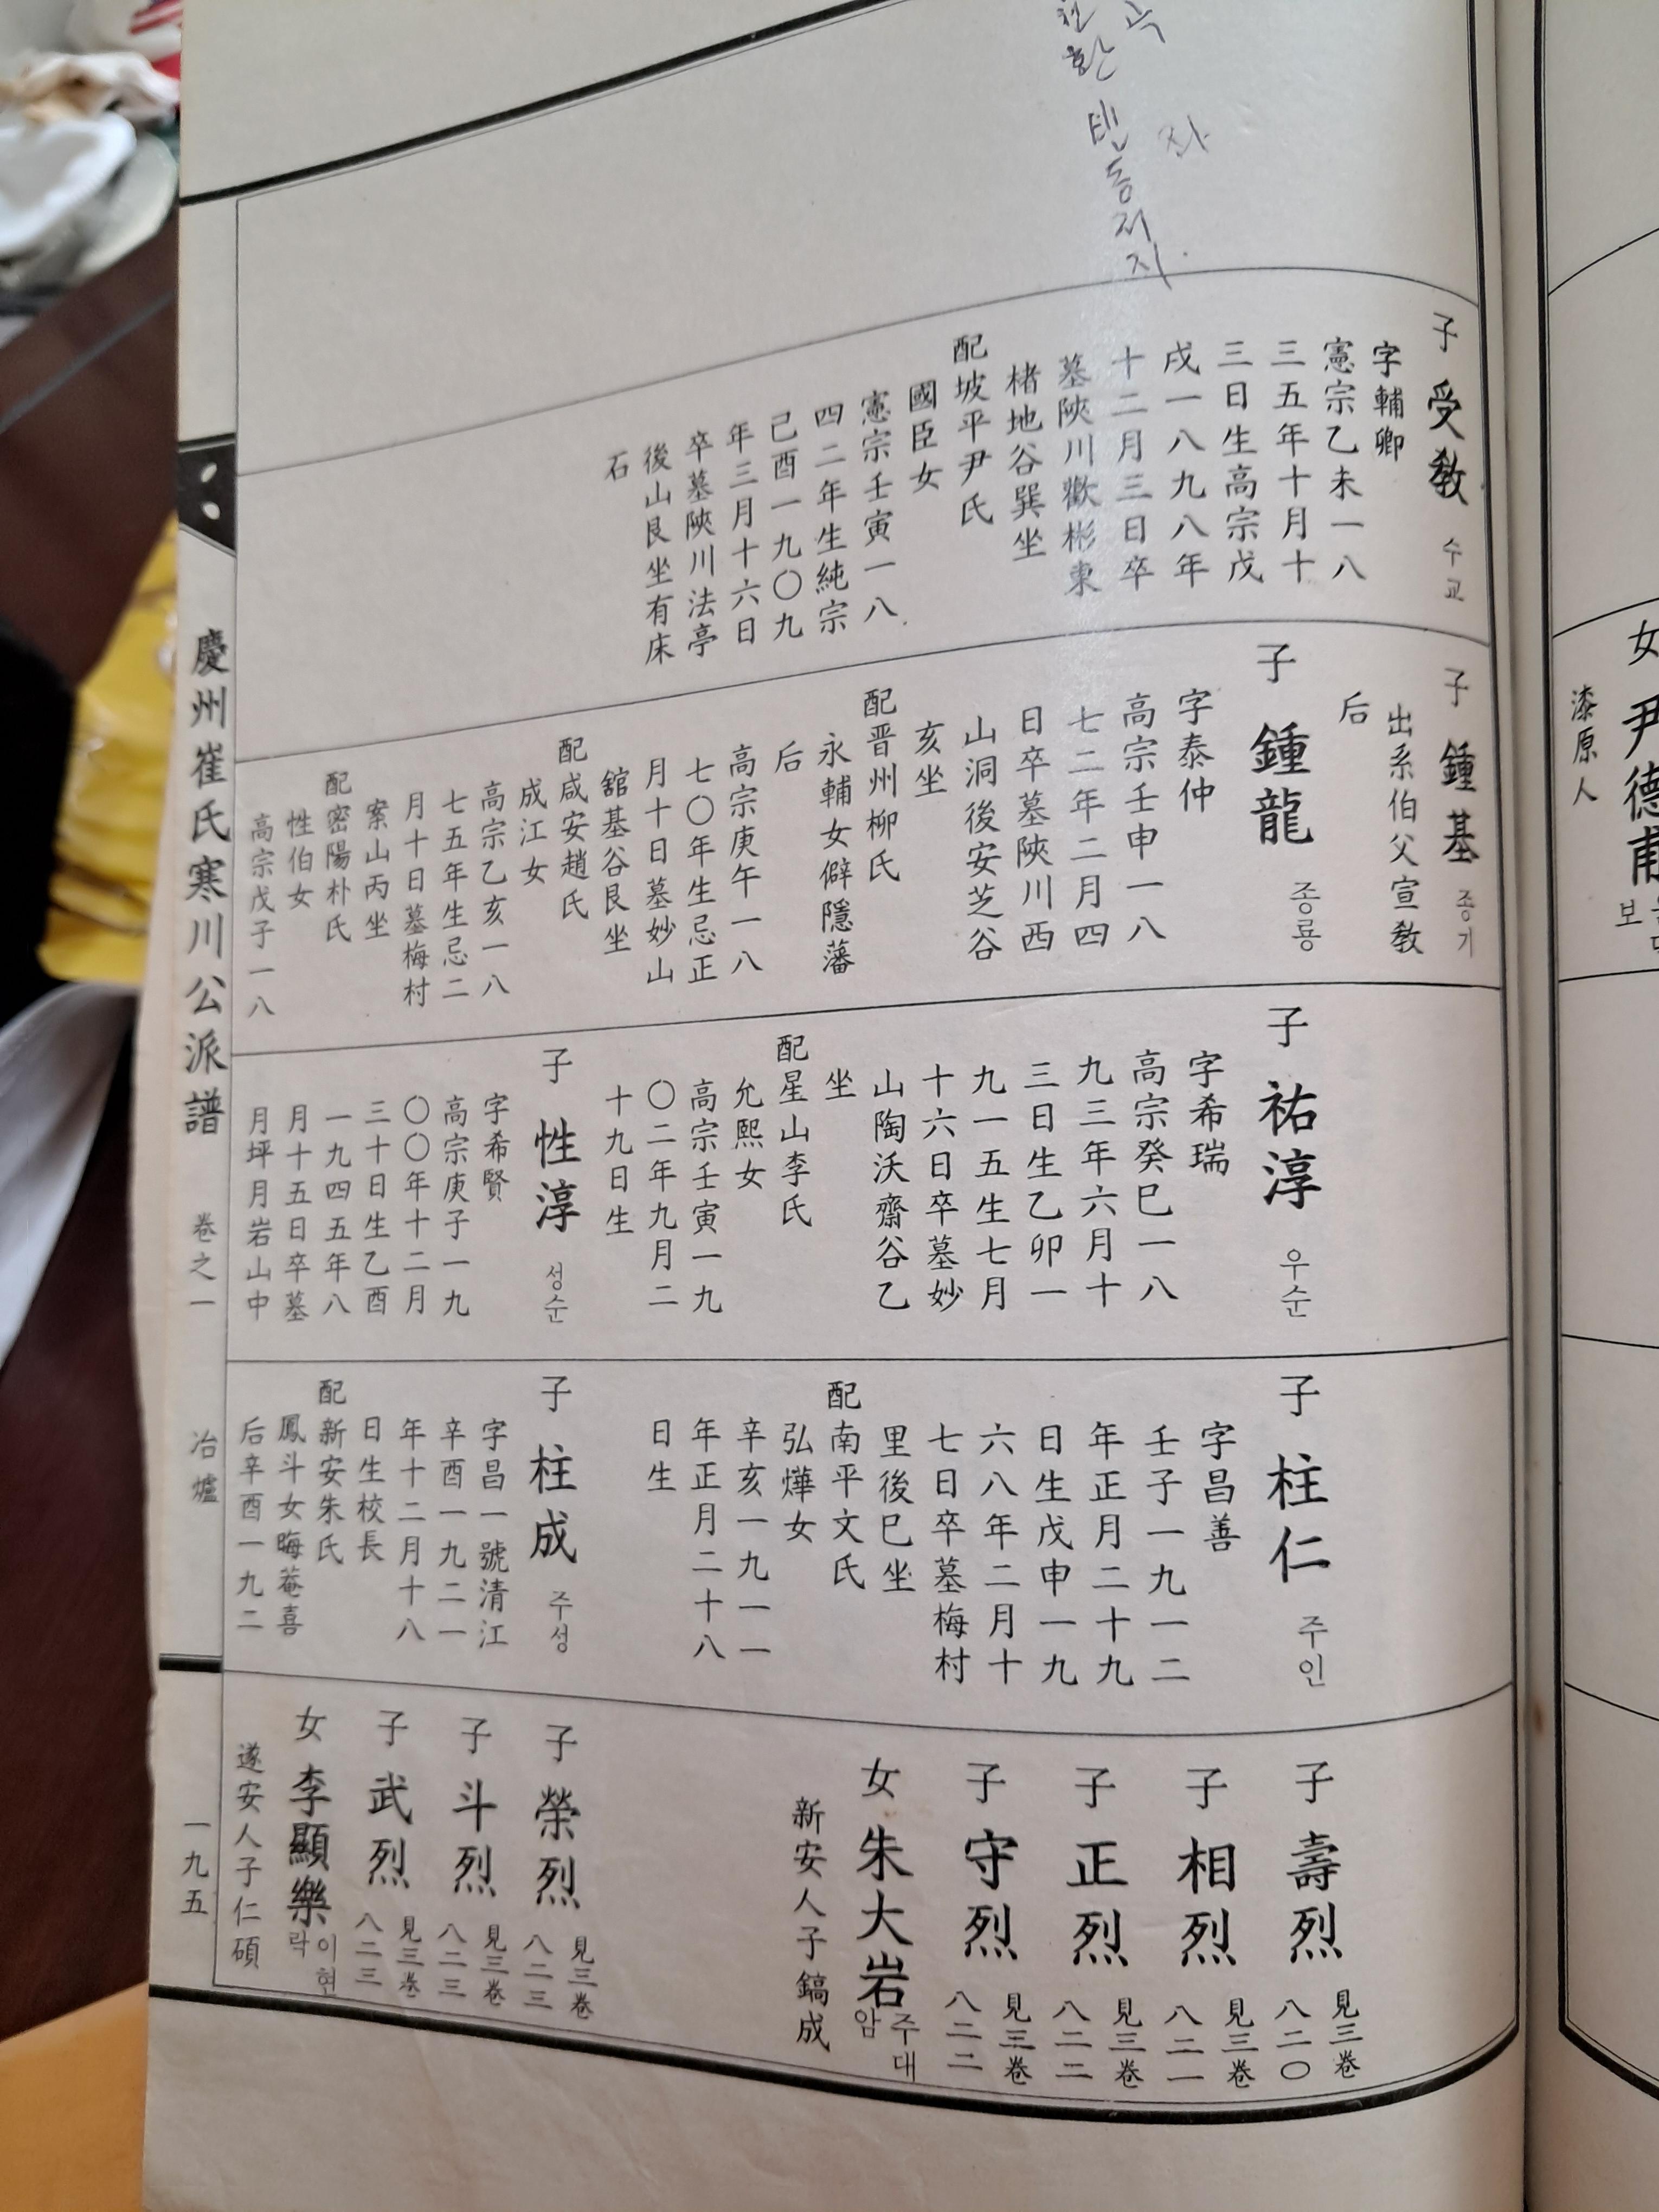 빈
동
저
지
자
子 受教 수교
字輔卿
憲宗乙未一八
三五年十月十
三日生高宗戊
戌一八九八年
十二月三日卒
墓陜川歡彬東
楮地谷巽坐
配坡平尹氏
國臣女
憲宗壬寅一八
四二年生純宗
己酉一九〇九
年三月十六日
卒墓陜川法亭
後山艮坐有床
石
子 鍾基 종기
出系伯父宣教
后
子 鍾龍 종룡
字泰仲
高宗壬申一八
七二年二月四
日卒墓陜川西
山洞後安芝谷
亥坐
配晋州柳氏
永輔女僻隱藩
后
高宗庚午一八
七〇年生忌正
月十日墓妙山
舘基谷艮坐
配咸安趙氏
成江女
高宗乙亥一八
七五年生忌二
月十日墓梅村
案山丙坐
配密陽朴氏
性伯女
高宗戊子一八
子 祐淳 우순
字希瑞
高宗癸巳一八
九三年六月十
三日生乙卯一
九一五生七月
十六日卒墓妙
山陶沃齋谷乙
坐
配星山李氏
允熙女
高宗壬寅一九
〇二年九月二
十九日生
子 性淳 성순
字希賢
高宗庚子一九
〇〇年十二月
三十日生乙酉
一九四五年八
月十五日卒墓
月坪月岩山中
子 柱仁 주인
字昌善
壬子一九一二
年正月二十九
日生戊申一九
六八年二月十
七日卒墓梅村
里後巳坐
配南平文氏
弘燁女
辛亥一九一一
年正月二十八
日生
子 柱成 주성
字昌一號清江
辛酉一九二一
年十二月十八
日生校長
配新安朱氏
鳳斗女晦菴喜
后辛酉一九二
子 壽烈 見三卷
八二〇
子 相烈 見三卷
八二一
子 正烈 見三卷
八二二
子 守烈 見三卷
八二二
女 朱大岩 주대
암
新安人子鎬成
子 榮烈 見三卷
八二三
子 斗烈 見三卷
八二三
子 武烈 見三卷
八二三
女 李顯樂 이현
락
遂安人子仁碩
慶州崔氏寒川公派譜 卷之一 冶爐 一九五
女 尹德甫
보
漆原人